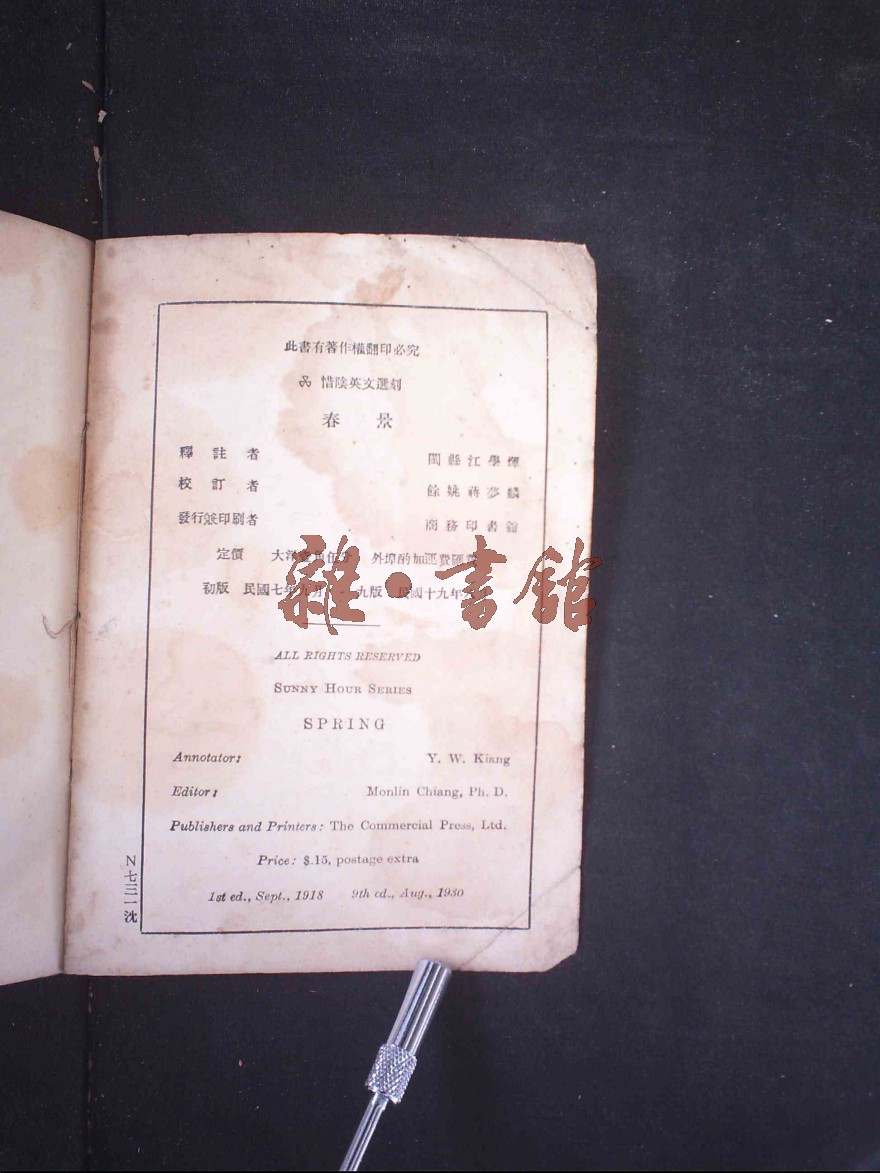 此書有著作權翻印必究
惜陰英文選刻
春 景
釋註者 閩縣江學煇
校訂者 餘姚蔣夢麟
發行兼印刷者 商務印書館
定價 大洋壹角伍分 外埠酌加運費匯費
初版 民國七年九月 九版 民國十九年八月
雜·書館
ALL RIGHTS RESERVED
SUNNY HOUR SERIES
SPRING
Annotator: Y. W. Kiang
Editor: Monlin Chiang, Ph. D.
Publishers and Printers: The Commercial Press, Ltd.
Price: $.15, postage extra
1st ed., Sept., 1918 9th ed., Aug., 1930
N七三一沈